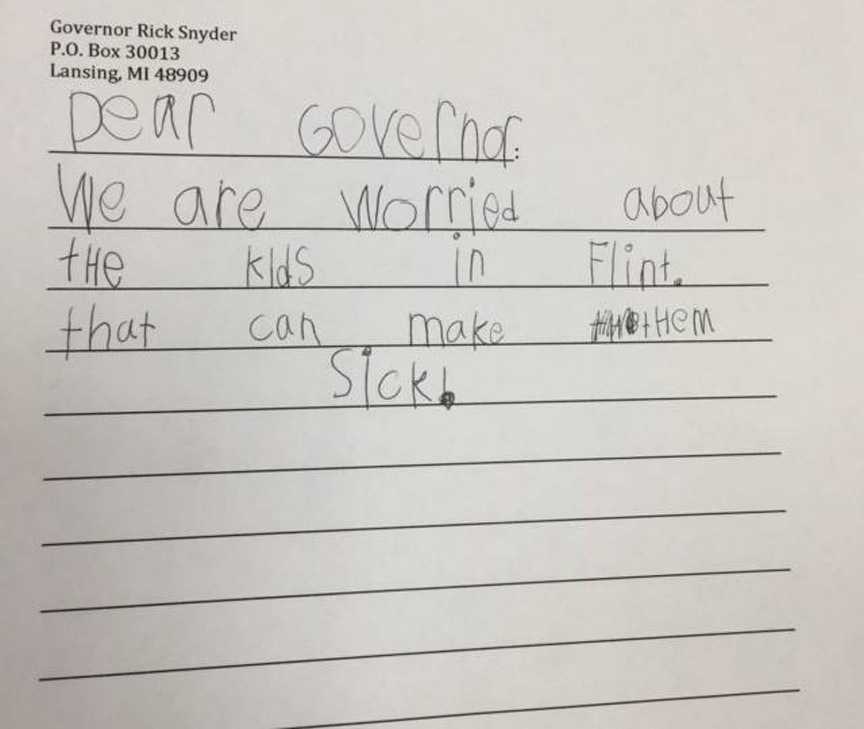 Governor Rick Snyder
P.O. Box 30013
Lansing, MI 48909
Dear Governor:
We are Worried about
tHe kIds in Flint.
that can make tHem
Sick!